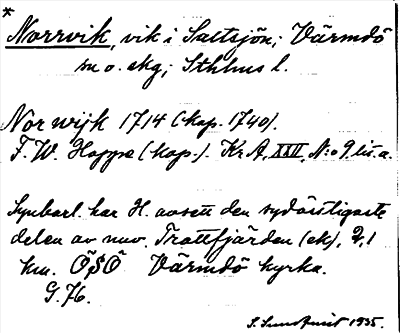 *
Norrvik, vik i Saltsjön; Värmdö
sn o. skg; Sthlms l.
Norwijk 1714 (kop. 1740).
F. W. Hoppe (kop.). KrA, XXII, N:o 9 lit. a.
Synbarl. har H. avsett den sydöstligaste
delen av nuv. Trattfjärden (ek), 2,1
km. ÖSÖ Värmdö kyrka.
G. 76.
S. Sundqvist 1935.